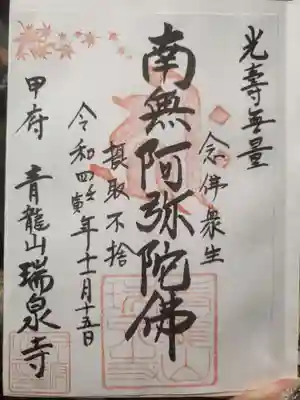 光壽無量
念佛衆生
南無阿弥陀佛
摂取不捨
令和四壬寅年十一月十五日
甲府 青龍山瑞泉寺